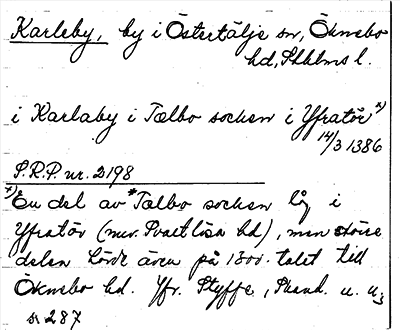 Karleby, by i Östertälje sn, Öknebo
hd, Sthlms l.
i Karlaby i Tælbo socken i Yfratør x)
14/3 1386
S.R.P. nr. 2198
x) En del av *Tælbo socken låg i
Yfratör (nuv. Svartlösa hd), men större
delen hörde även på 1300-talet till
Öknebo hd. Jfr. Styffe, Skand. u. u.3
s. 287